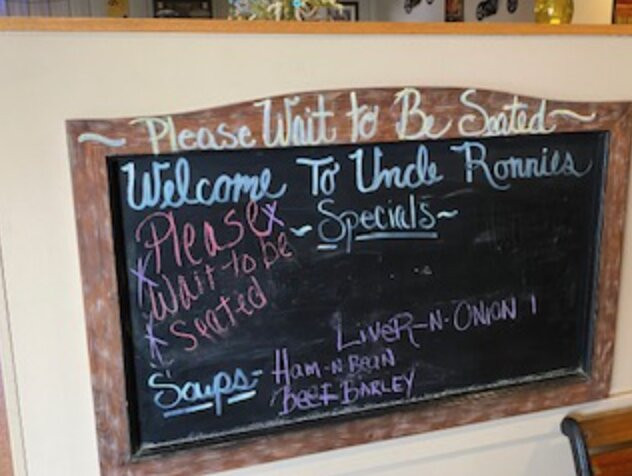 ~ Please Wait to Be Seated ~
Welcome To Uncle Ronnies
~ Specials ~
Please
Wait to be
Seated
LiveR-N-ONION
Soups- Ham-N-Bean
Beef BARLEY